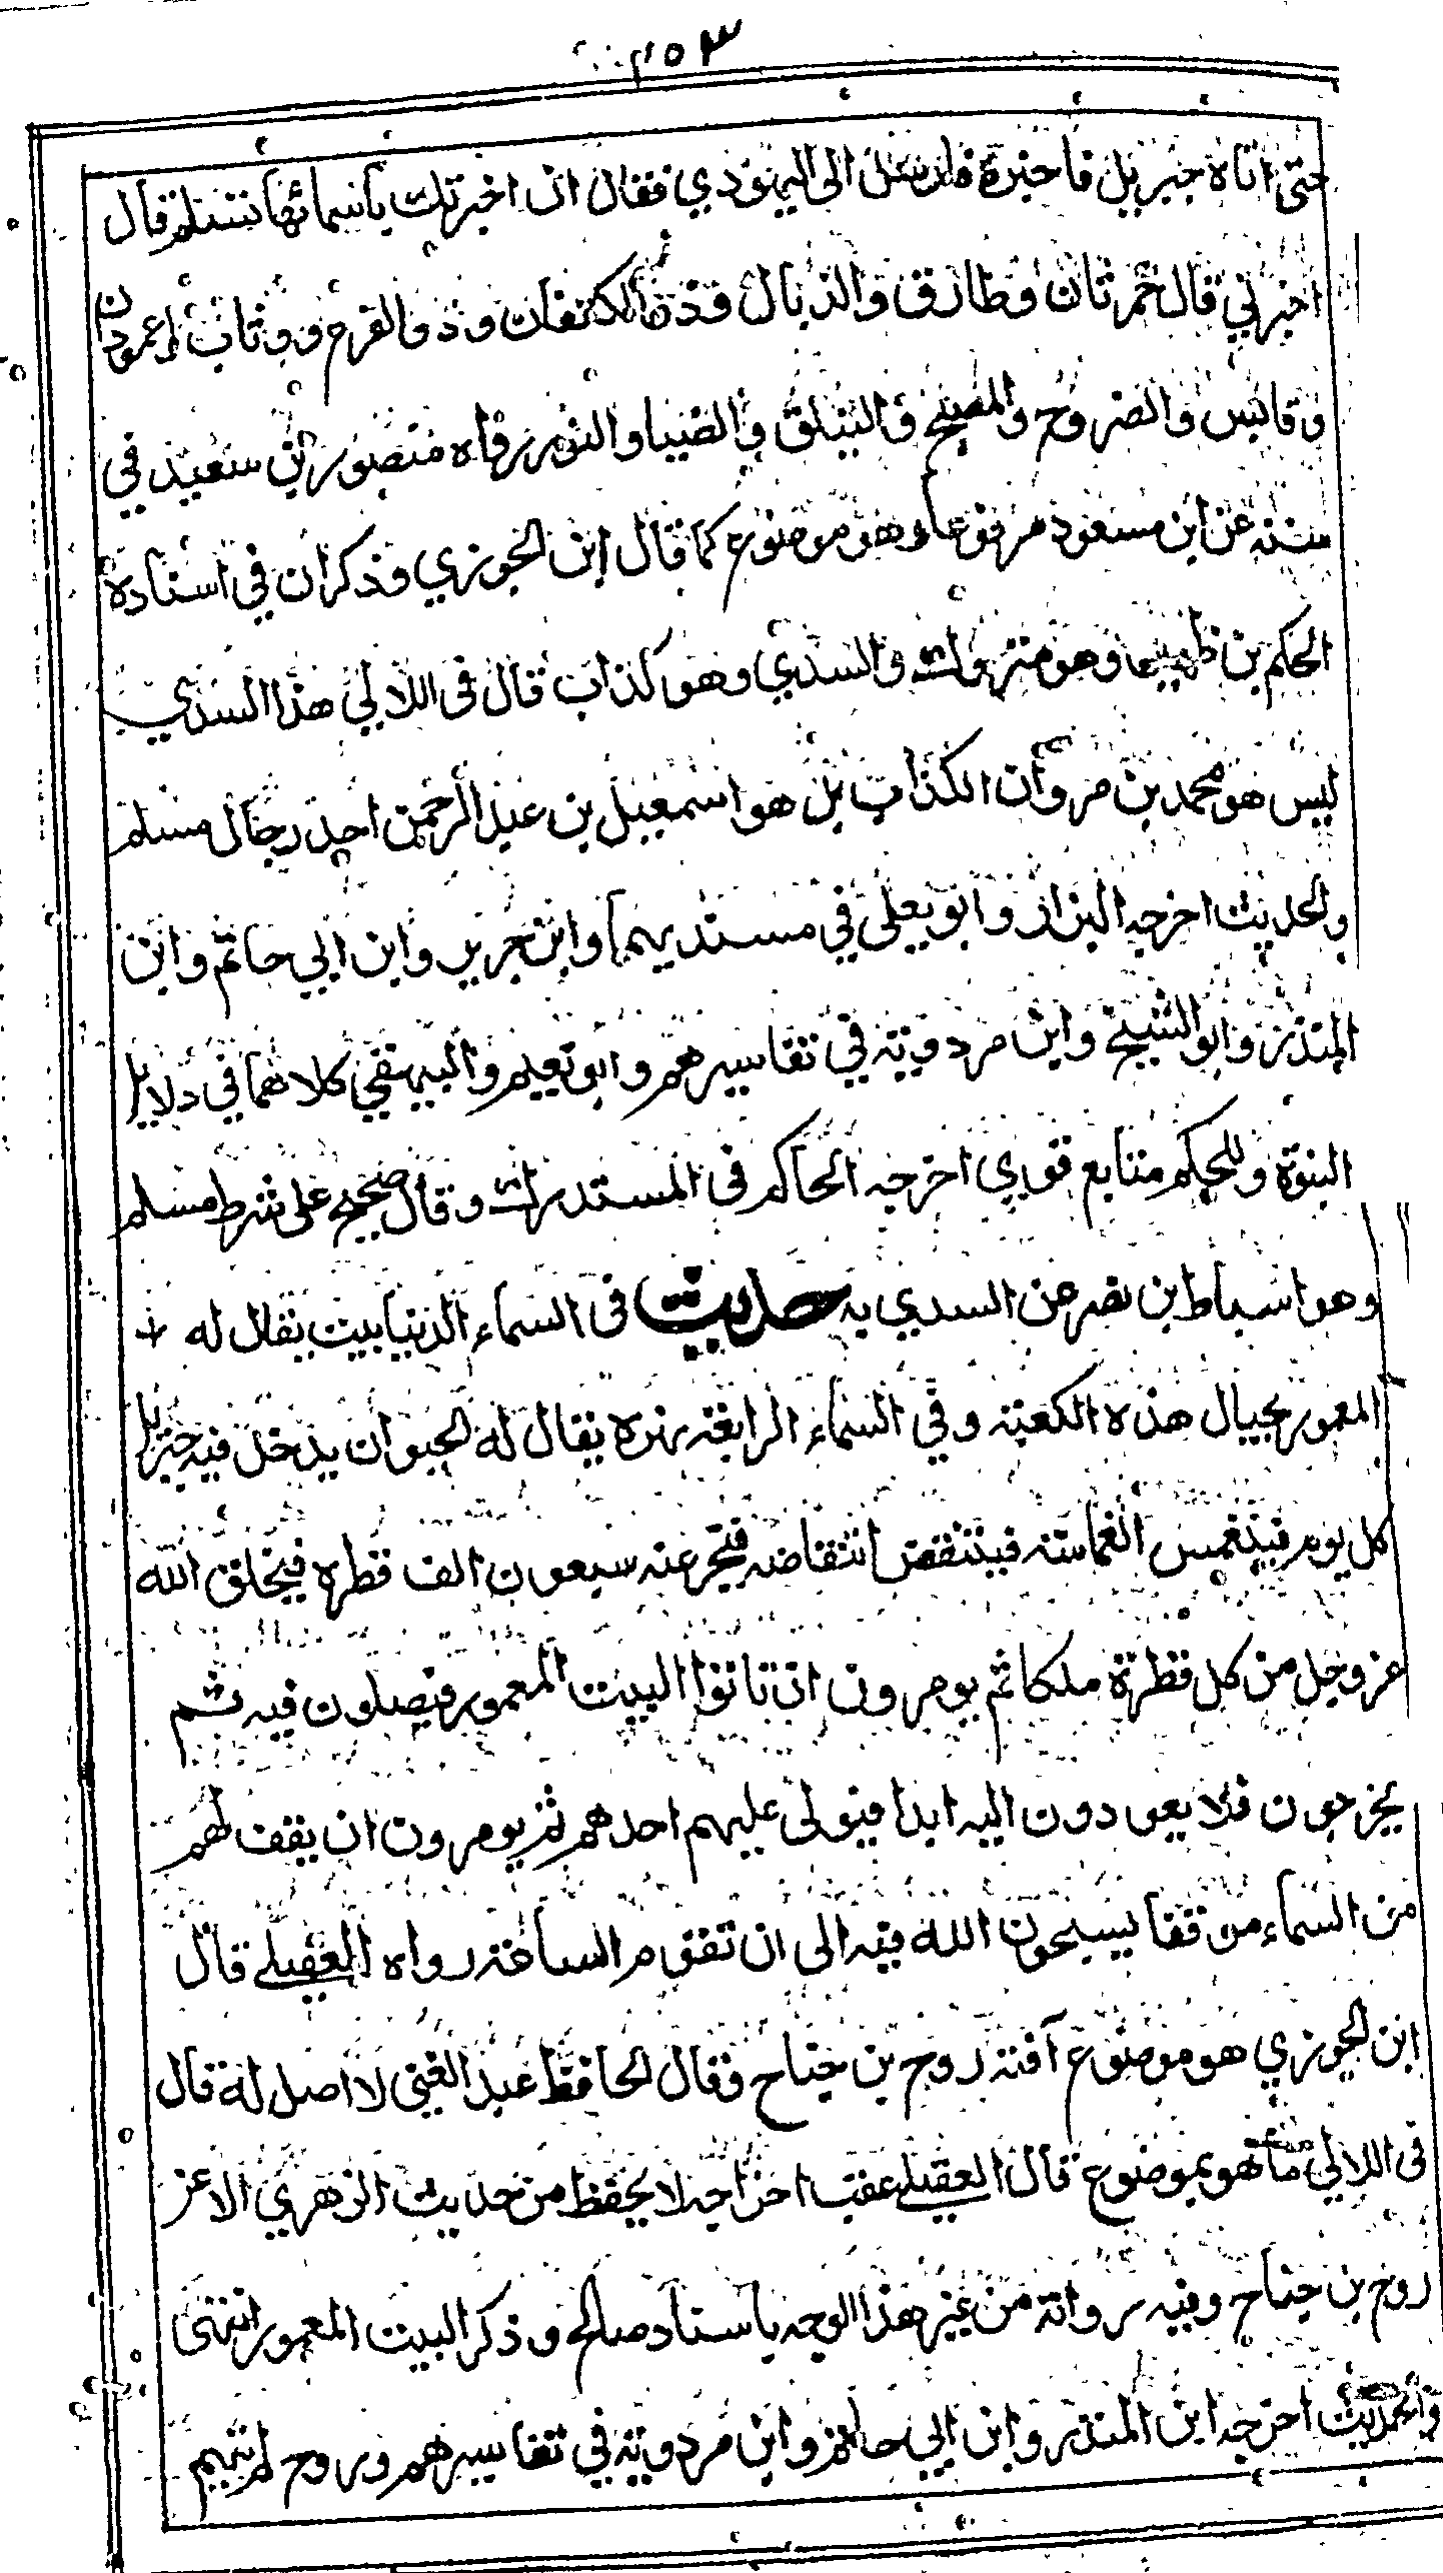 ٢٥٣
حتى اتاه جبريل فاخبره فارسل الى اليهودي فقال ان اخبرتك باسمائها تسلم قال
اخبرني قال خرثان وطارق والذيال وذو الكتفان وذو الفرع ووثاب وعمودان
وقابس والضروح والمصبح والفيلق والضيا والنور رواه منصور بن سعيد في
سننه عن ابن مسعود مرفوعا وهو موضوع كما قال ابن الجوزي وذكر ان في اسناده
الحكم بن ظهير وهو متروك والسدي وهو كذاب قال في اللالي هذا السدي
ليس هو محمد بن مروان الكذاب بل هو اسمعيل بن عبد الرحمن احد رجال مسلم
والحديث اخرجه البزار وابو يعلى في مسنديهما وابن جرير وابن ابي حاتم وابن
المنذر وابو الشيخ وابن مردويه في تفاسيرهم وابو نعيم والبيهقي كلاهما في دلايل
النبوة وللحكم متابع قوي اخرجه الحاكم في المستدرك وقال صحيح على شرط مسلم
وهو اسباط بن نصر عن السدي به حديث في السماء الدنيا بيت يقال له
المعمور بحيال هذه الكعبة وفي السماء الرابعة نهره يقال له الحيوان يدخل فيه جبريل
كل يوم فينغمس انغماسة فينتفض انتفاضة فيخر عنه سبعون الف قطرة فيخلق الله
عز وجل من كل قطرة ملكا ثم يومرون ان تاتوا البيت المعمور فيصلون فيه ثم
يخرجون فلا يعودون اليه ابدا فيولى عليهم احدهم ثم يومرون ان يقف لهم
من السماء موقفا يسبحون الله فيه الى ان تقوم الساعة رواه العقيلي قال
ابن الجوزي هو موضوع آفته روح بن جناح وقال الحافظ عبد الغني لا اصل له قال
في اللالي ما هو بموضوع قال العقيلي عقب اخراجه لا يحفظ من حديث الزهري الا عن
روح بن جناح وفيه رواية من غير هذا الوجه باسناد صالح وذكر البيت المعمور انتهى
والحديث اخرجه ابن المنذر وابن ابي حاتم وابن مردويه في تفاسيرهم وروح لم يتهم